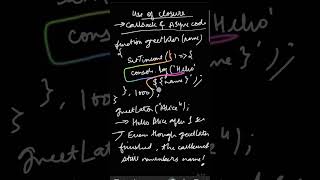 Use of closure
→ Callback & Async code
function greetLater(name)
{ setTimeout(() => {
console.log('Hello'
${name}');
}, 1000);
}
greetLater("Alice");
→ Hello Alice after 1 sec
→ Even though greetLater
finished, the callback
still remembers name!